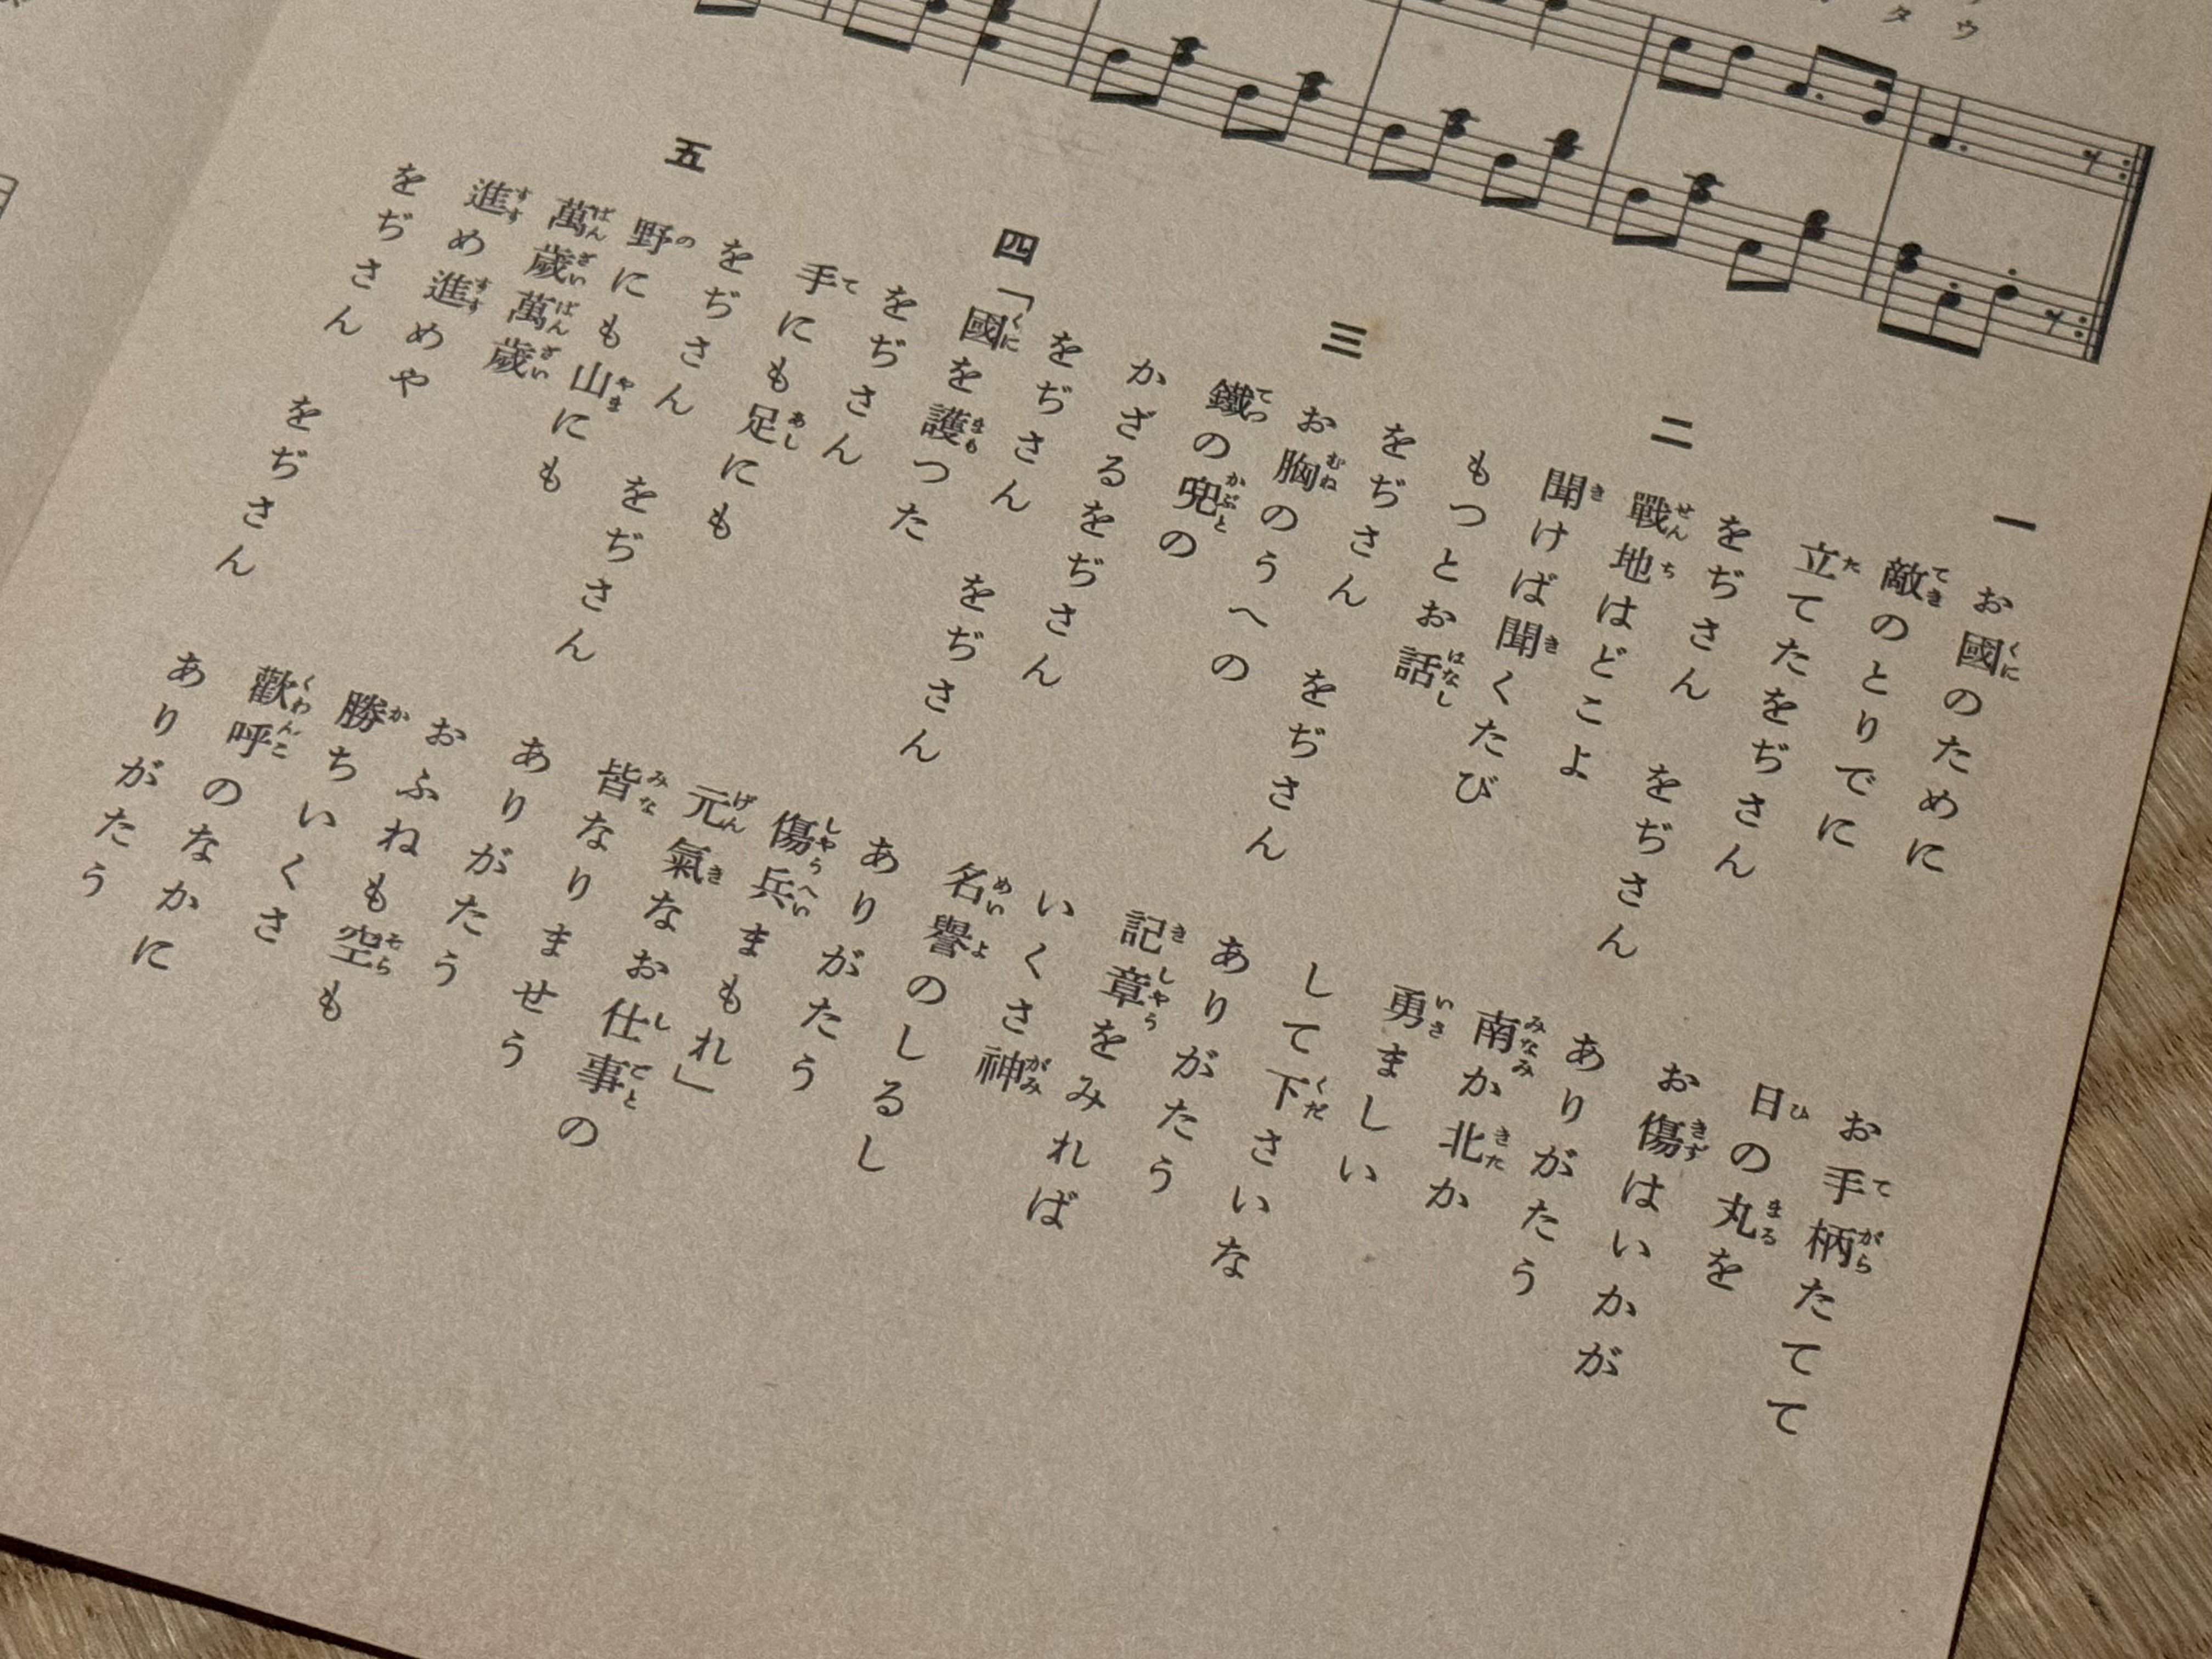 ウ
タ
一 お國のために お手柄たてて
敵のとりでに 日の丸を
立てたをぢさん お傷はいかが
をぢさん をぢさん ありがたう
二 戰地はどこよ 南か北か
聞けば聞くたび 勇ましい
もつとお話 して下さいな
をぢさん をぢさん ありがたう
三 お胸のうへの 記章をみれば
鐵の兜の いくさ神
かざるをぢさん 名譽のしるし
をぢさん をぢさん ありがたう
四 「國を護つた 傷兵まもれ」
をぢさん 元氣なお仕事の
手にも足にも 皆なりませう
をぢさん をぢさん ありがたう
五 野にも山にも おふねも空も
萬歲萬歲 勝ちいくさ
進め進めや 歡呼のなかに
をぢさん をぢさん ありがたう